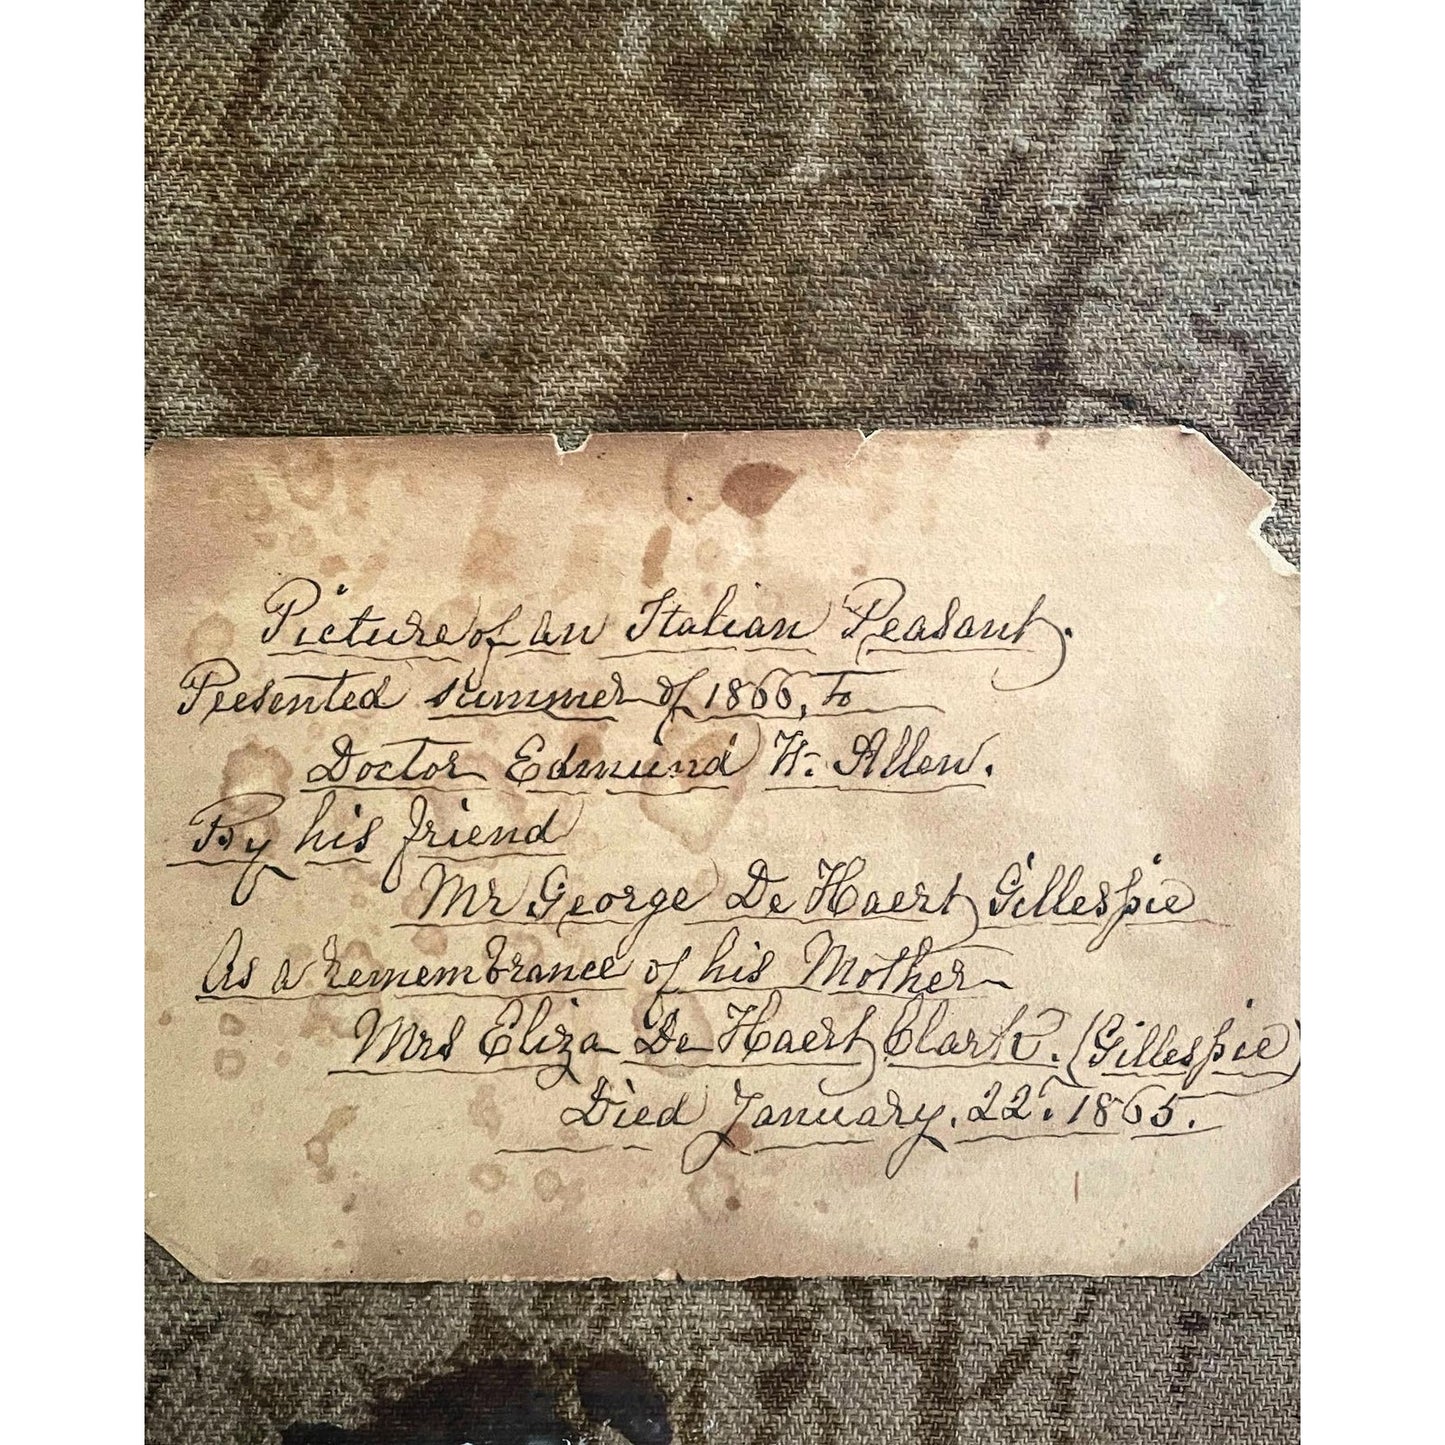 Picture of an Italian Peasant.
Presented summer of 1866, to
Doctor Edmund H. Allen.
By his friend
Mr George De Haert Gillespie
As a remembrance of his Mother
Mrs Eliza De Haert Clark. (Gillespie)
Died January. 22. 1865.